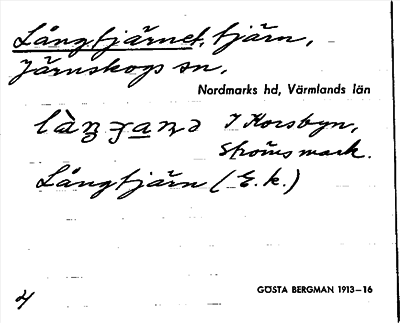 Långtjärnet, tjärn,
Järnskogs sn.
Nordmarks hd, Värmlands län
I Korsbyn,
Ströms mark.
Långtjärn (E. k.)
GÖSTA BERGMAN 1913–16
4